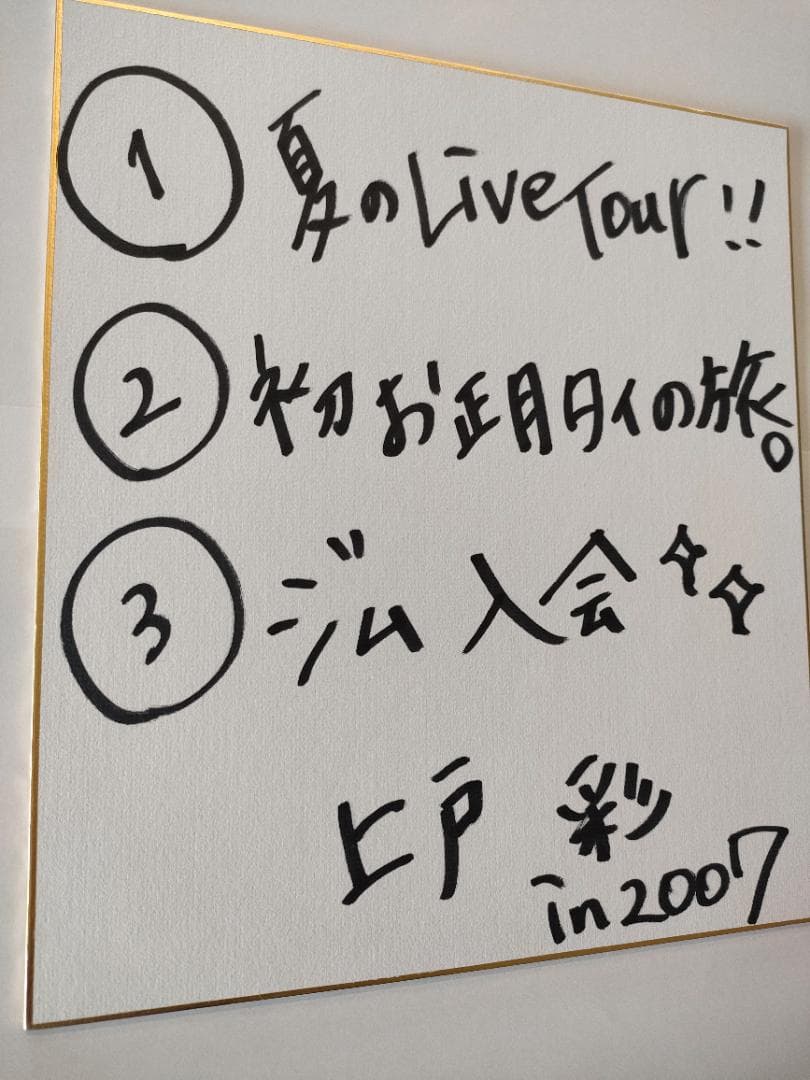 ① 夏のLive Tour!!
② 初お正月タイの旅。
③ ジム入会✧✧
上戸 彩
in2007